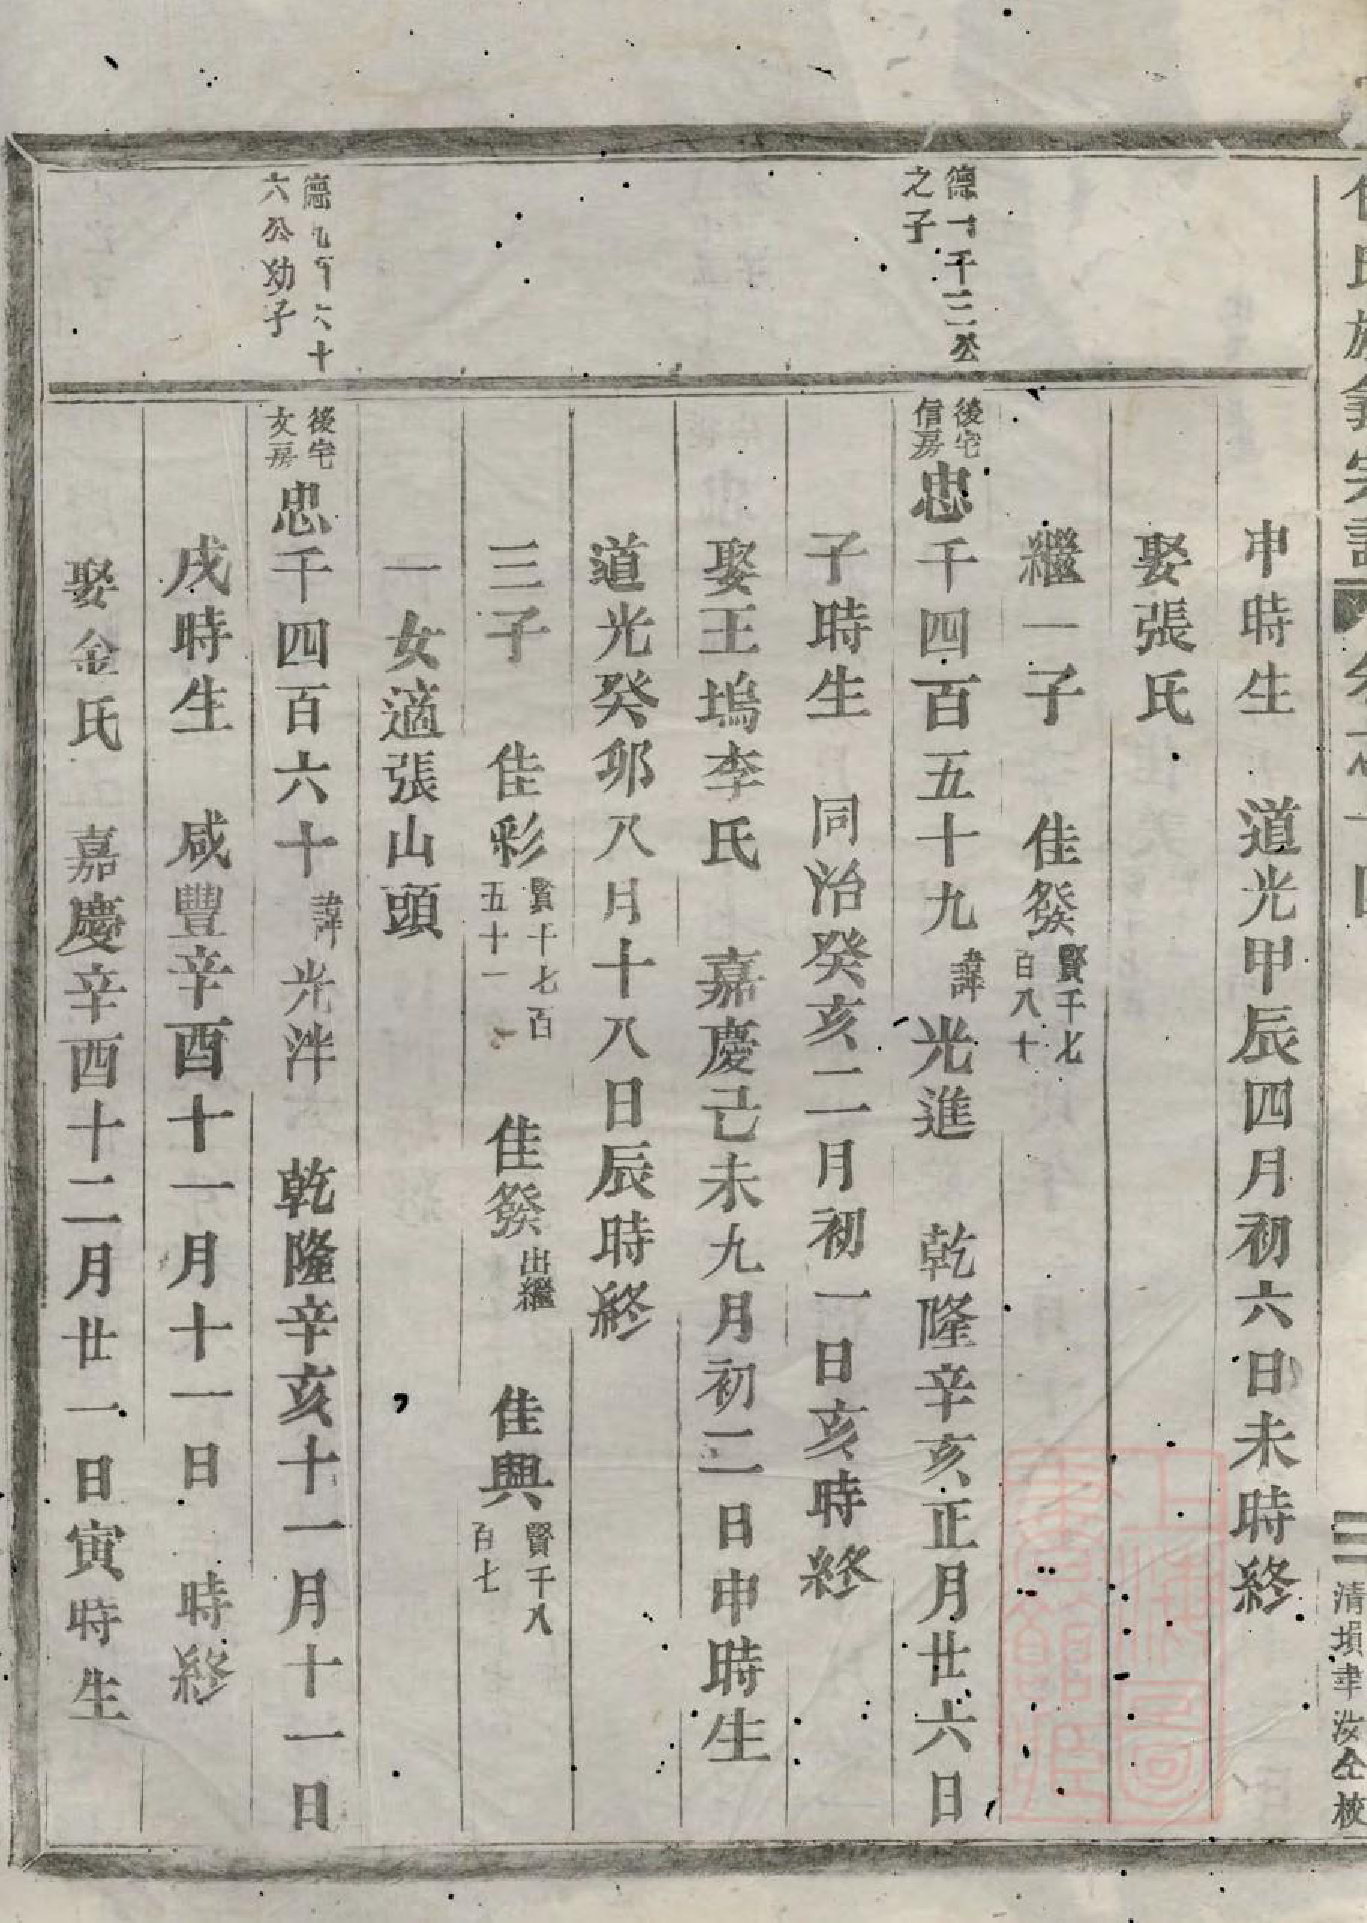 申時生　道光甲辰四月初六日未時終
娶張氏
繼一子　佳發賢千七百八十
德一千三公之子
後宅信房忠千四百五十九諱光進　乾隆辛亥正月廿六日
子時生　同治癸亥二月初一日亥時終
娶王塢李氏　嘉慶己未九月初二日申時生
道光癸卯八月十八日辰時終
三子　佳彩賢千七百五十一　佳發出繼　佳興賢千八百七
一女適張山頭
德九百六十六公幼子
後宅文房忠千四百六十諱光泮　乾隆辛亥十一月十一日
戌時生　咸豐辛酉十一月十一日　時終
娶金氏　嘉慶辛酉十二月廿一日寅時生
上海圖書館藏